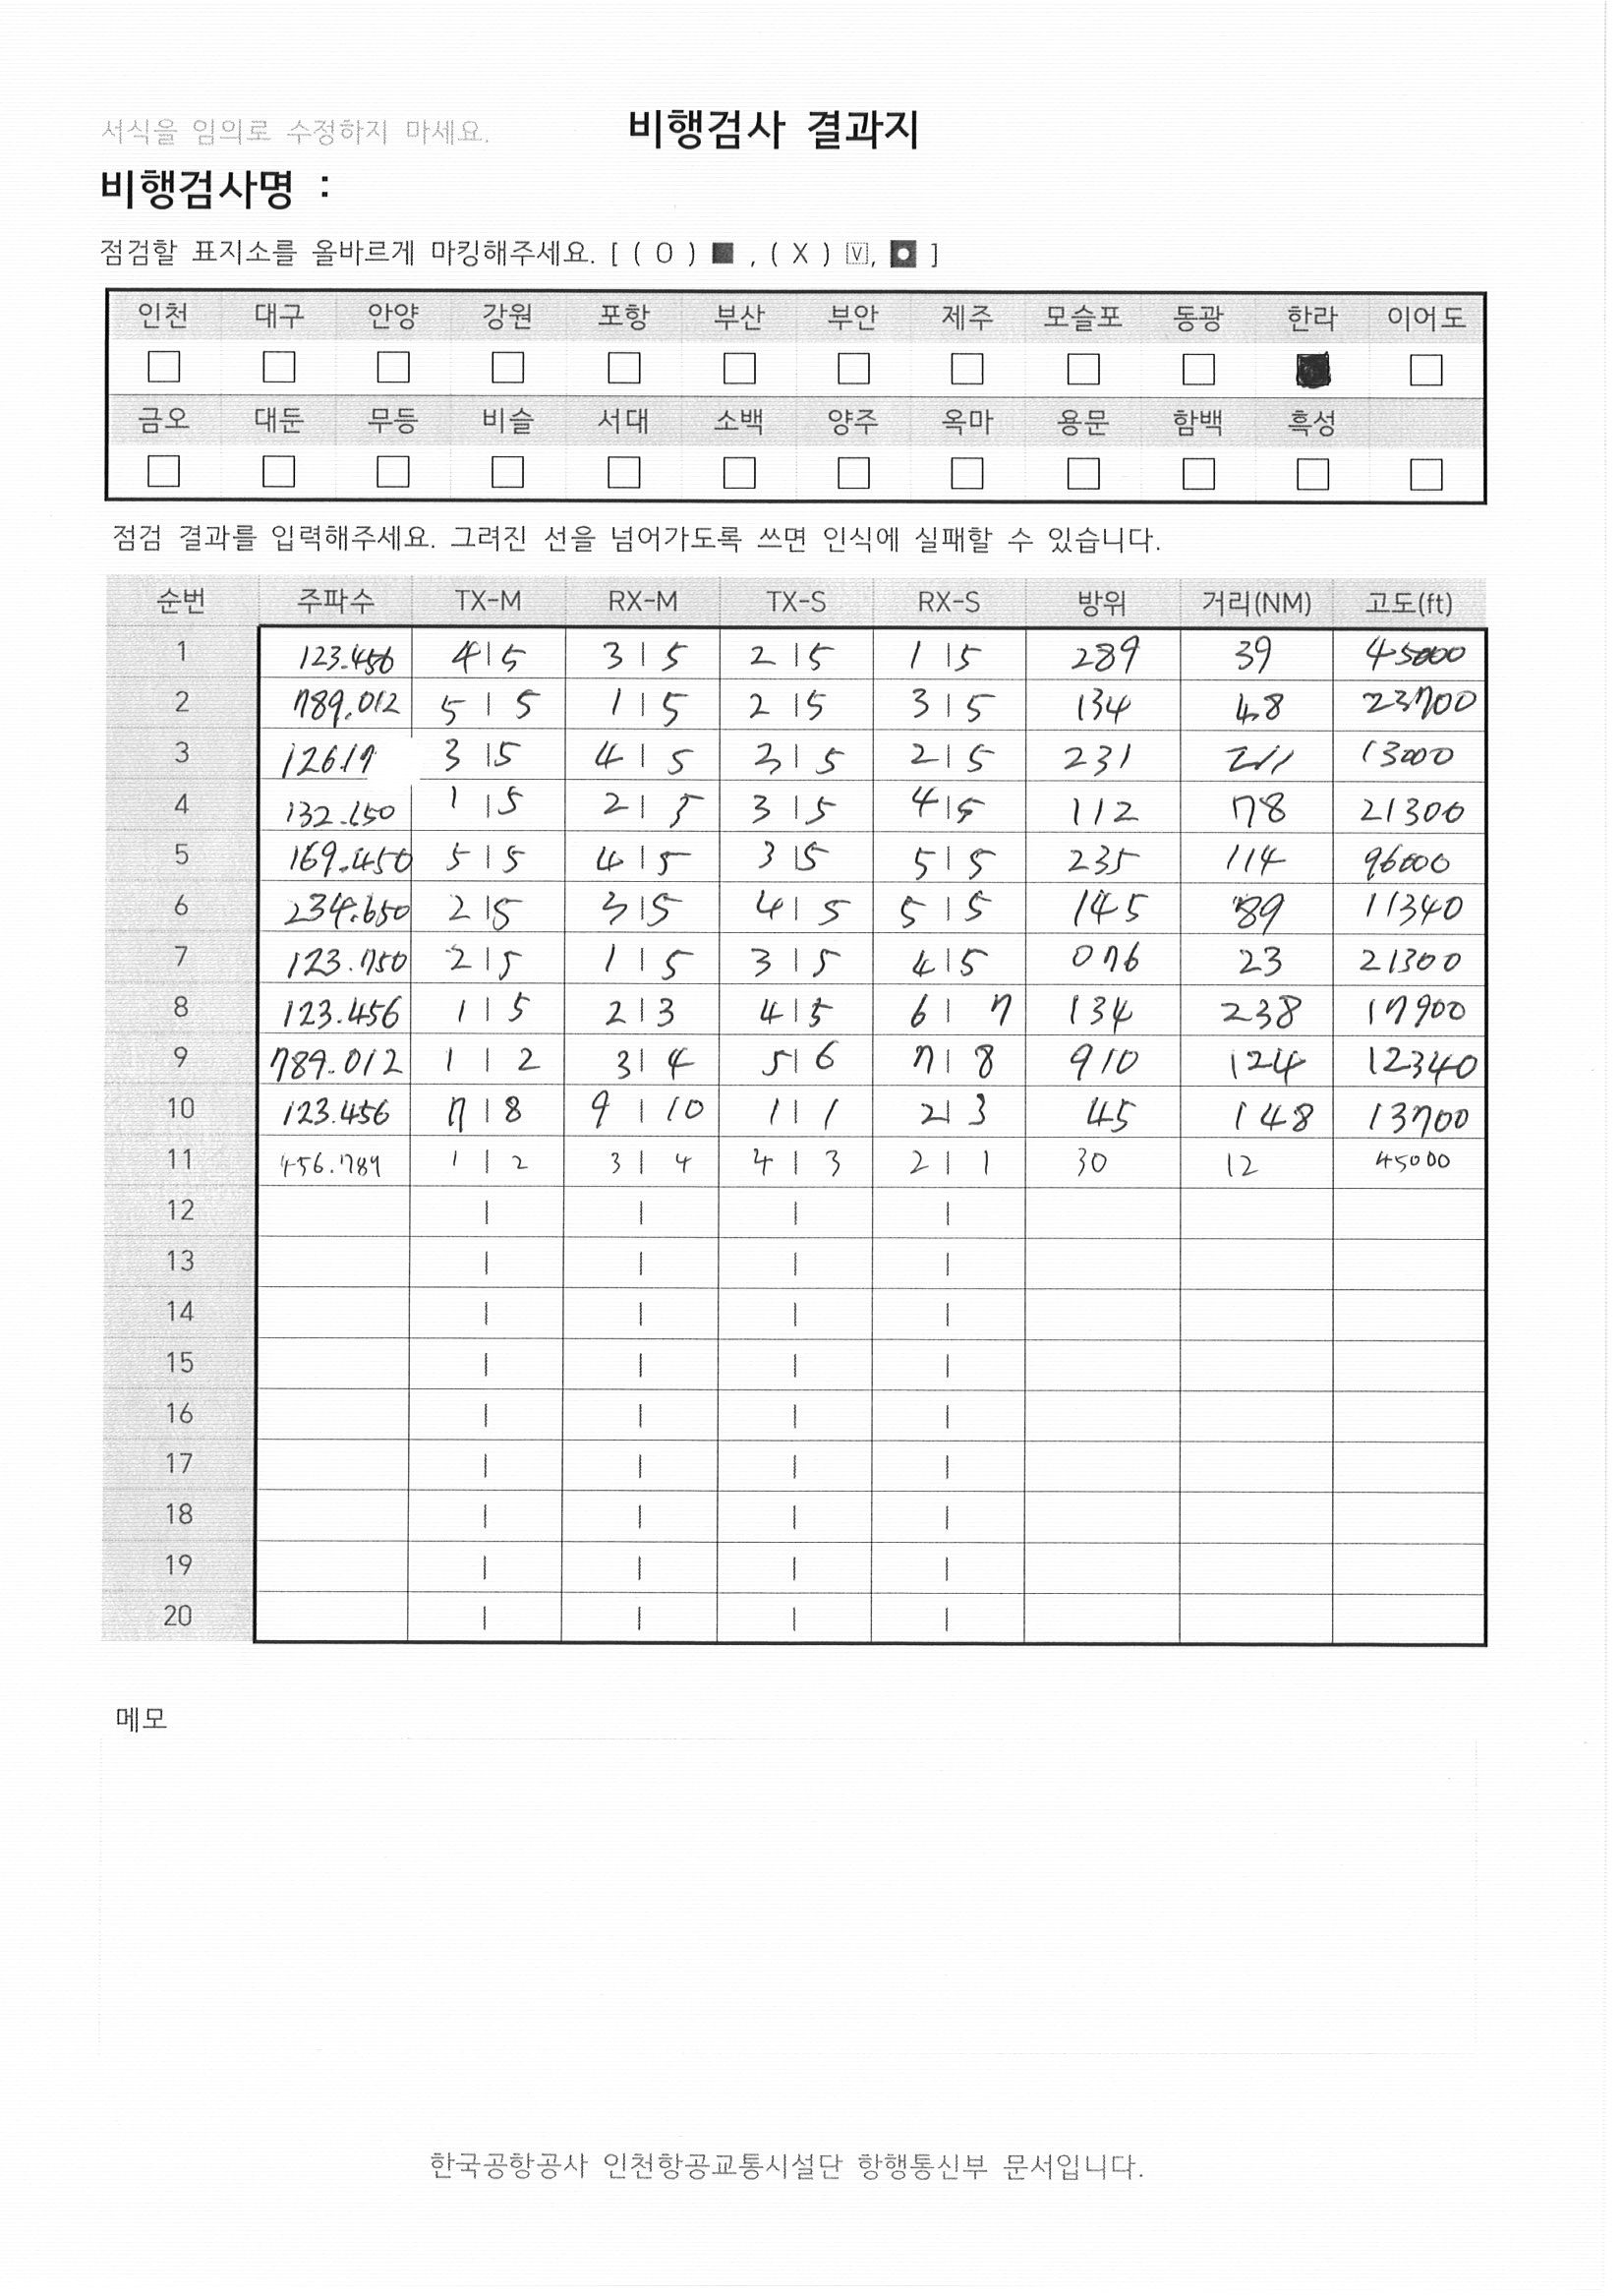 서식을 임의로 수정하지 마세요.
비행검사 결과지
비행검사명 :
점검할 표지소를 올바르게 마킹해주세요. [ ( O ) ■ , ( X ) ☑, ◘ ]
인천 대구 안양 강원 포항 부산 부안 제주 모슬포 동광 한라 이어도
□ □ □ □ □ □ □ □ □ □ ■ □
금오 대둔 무등 비슬 서대 소백 양주 옥마 용문 함백 흑성
□ □ □ □ □ □ □ □ □ □ □ □
점검 결과를 입력해주세요. 그려진 선을 넘어가도록 쓰면 인식에 실패할 수 있습니다.
순번 주파수 TX-M RX-M TX-S RX-S 방위 거리(NM) 고도(ft)
1 123.456 4|5 3|5 2|5 1|5 289 39 45000
2 789.012 5|5 1|5 2|5 3|5 134 48 23700
3 126.19 3|5 4|5 3|5 2|5 231 211 13000
4 132.150 1|5 2|5 3|5 4|5 112 78 21300
5 169.450 5|5 4|5 3|5 5|5 235 114 96000
6 234.650 2|5 3|5 4|5 5|5 145 89 11340
7 123.750 2|5 1|5 3|5 4|5 076 23 21300
8 123.456 1|5 2|3 4|5 6|7 134 238 17900
9 789.012 1|2 3|4 5|6 7|8 910 124 12340
10 123.456 7|8 9|10 1|1 2|3 45 148 13700
11 456.789 1|2 3|4 4|3 2|1 30 12 45000
12 | | | |
13 | | | |
14 | | | |
15 | | | |
16 | | | |
17 | | | |
18 | | | |
19 | | | |
20 | | | |
메모
한국공항공사 인천항공교통시설단 항행통신부 문서입니다.